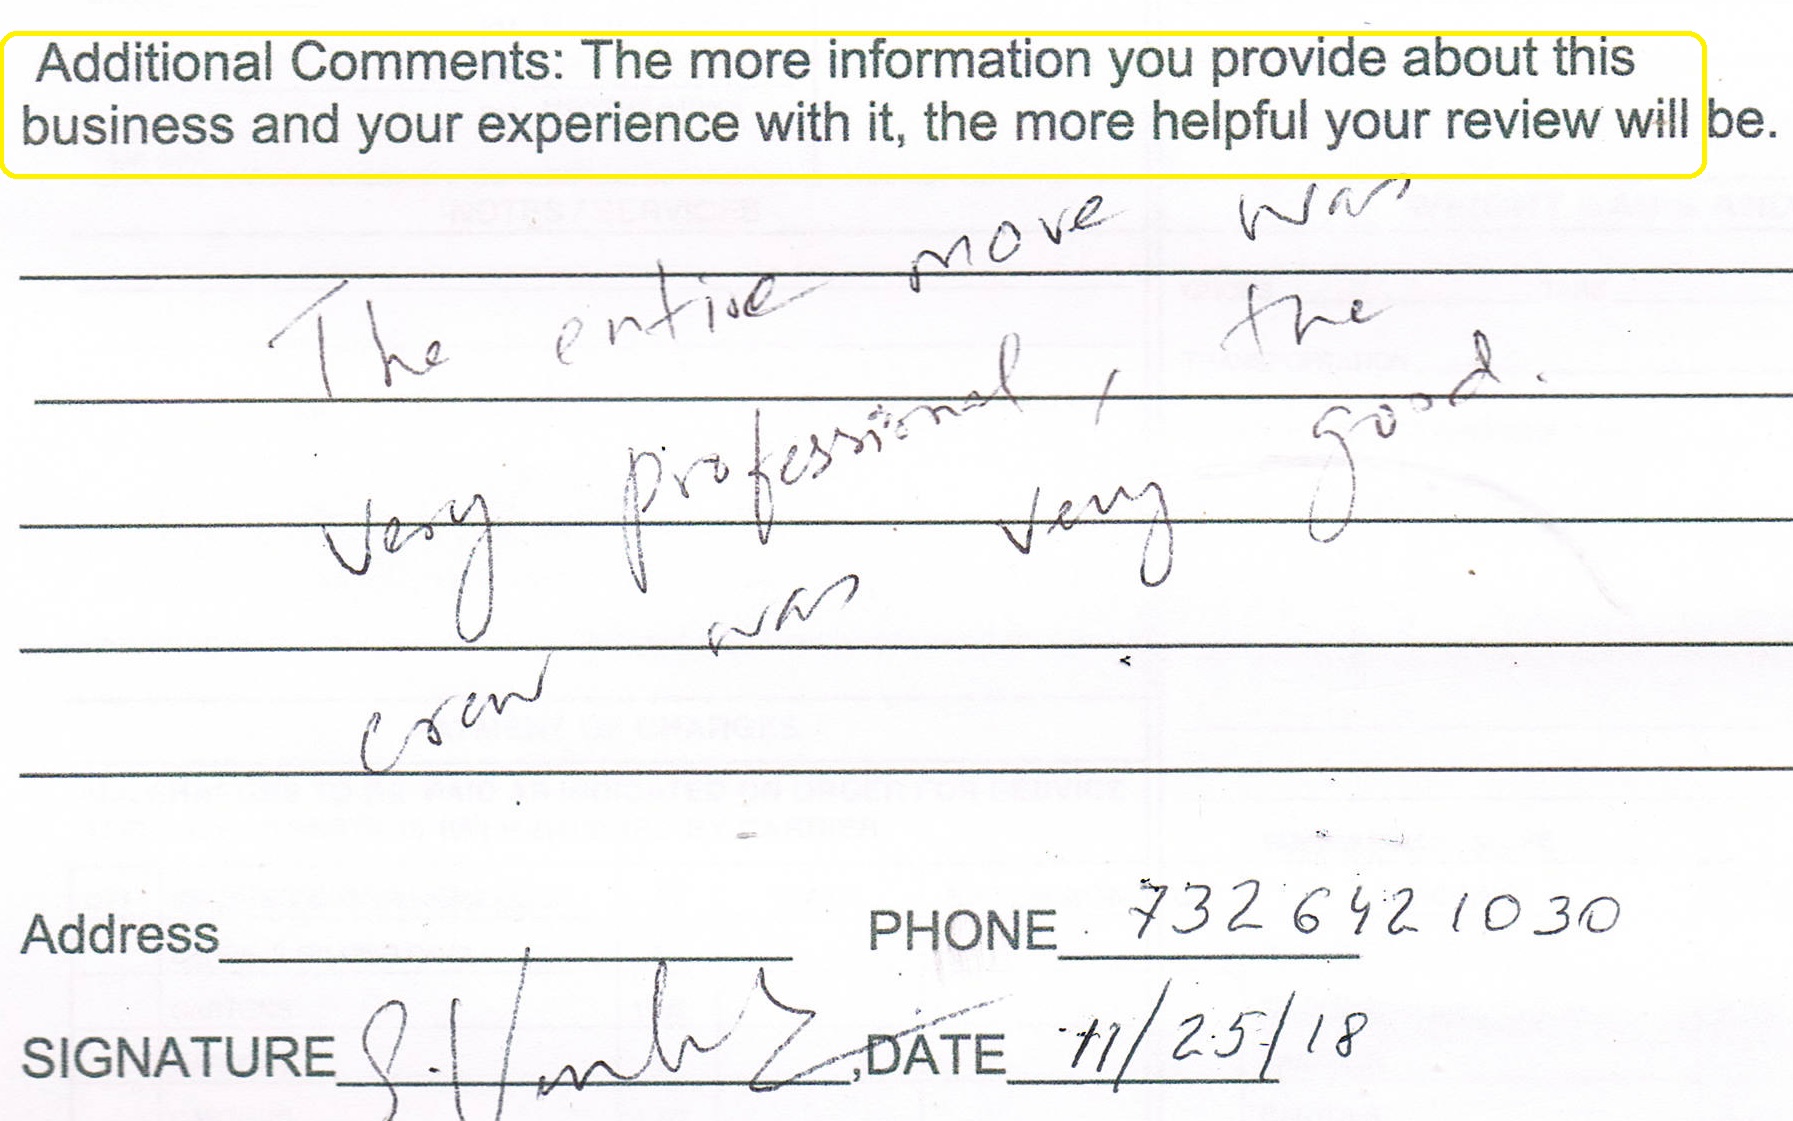 Additional Comments: The more information you provide about this
business and your experience with it, the more helpful your review will be.
The entire move was
very professional, the
crew was very good.
Address PHONE 732 642 1030
SIGNATURE ,DATE 11/25/18